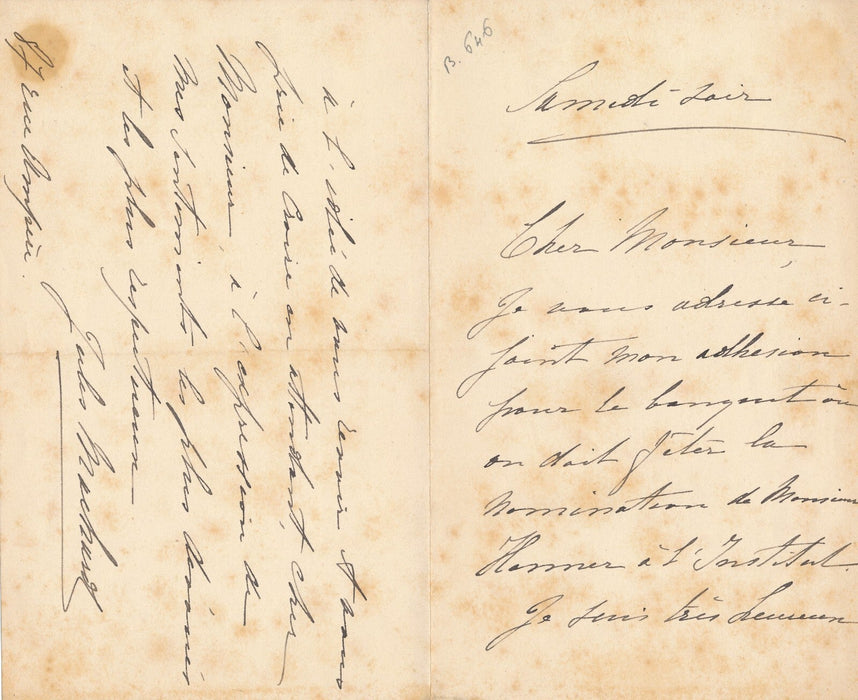 B. 646
Samedi soir
Cher Monsieur,
Je vous adresse ci-
joint mon adhesion
pour le banquet où
on doit fêter la
nomination de Monsieur
Henner à l'Institut.
Je suis très heureux
à l'idée de vous revoir et vous
prie de croire en attendant, cher
Monsieur à l'expression de
mes sentiments les plus dévoués
et les plus respectueux
Jules
87 rue Ampère.